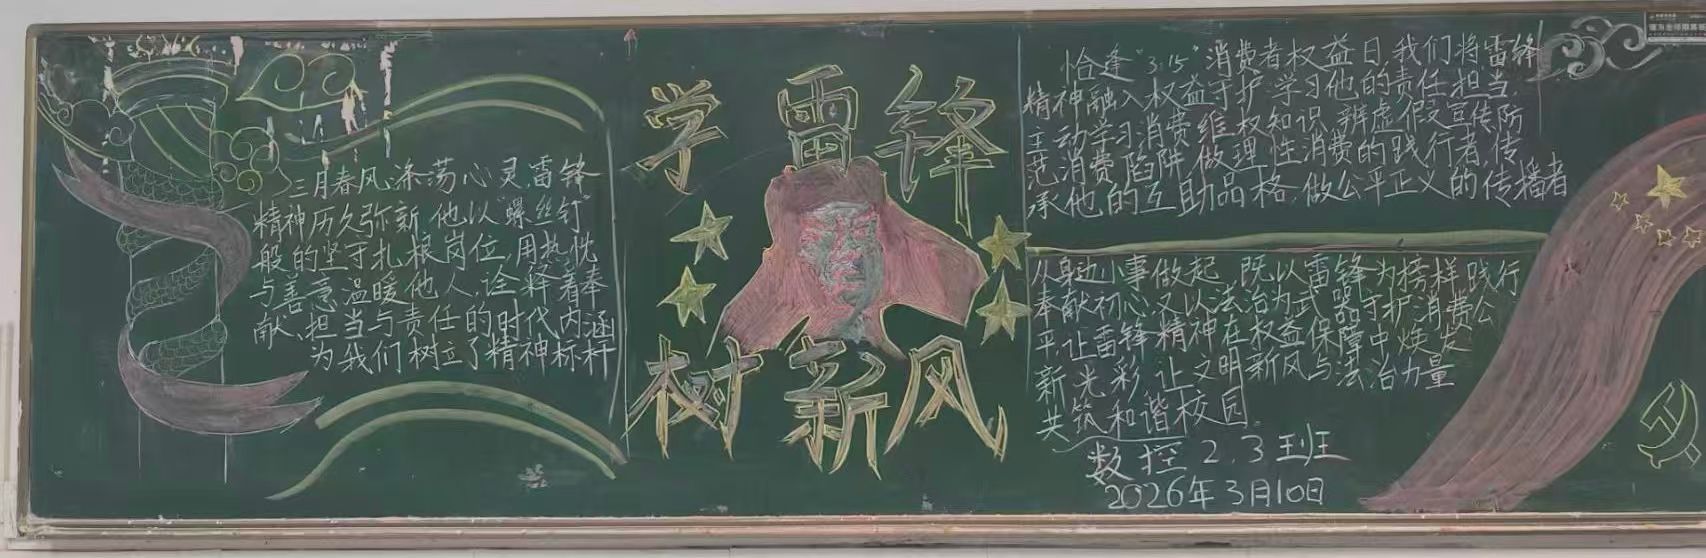 三月春风涤荡心灵,雷锋
精神历久弥新,他以“螺丝钉”
般的坚守扎根岗位,用热忱
与善意温暖他人,诠释着奉
献、担当与责任的时代内涵
为我们树立了精神标杆
学雷锋
树新风
恰逢“3·15”消费者权益日,我们将雷锋
精神融入权益守护,学习他的责任担当,
主动学习消费维权知识,辨虚假,宣传防
范消费陷阱,做理性消费的践行者,传
承他的互助品格,做公平正义的传播者
从身边小事做起,既以雷锋为榜样践行
奉献初心,又以法治为武器守护消费公
平,让雷锋精神在权益保障中焕发
新光彩,让文明新风与法治力量
共筑和谐校园。
数控2.3班
2026年3月10日